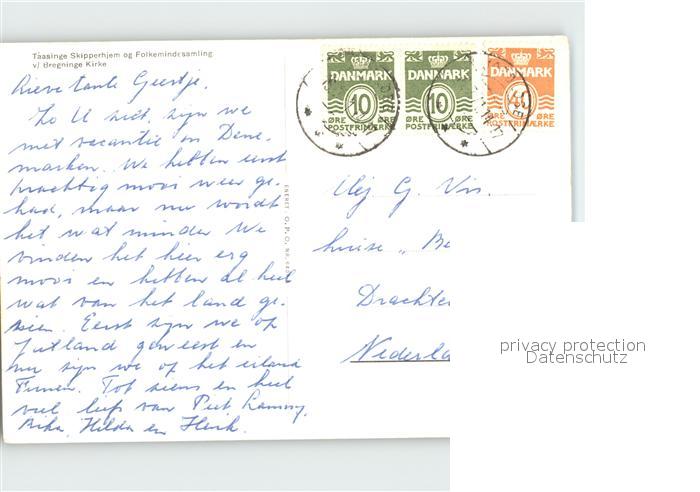 Taasinge Skipperhjem og Folkemindesamling
v/ Bregninge Kirke
Lieve tante Geertje.
Zo U ziet, zijn we
met vacantie in Dene-
marken. We hebben eerst
prachtig mooi weer ge-
had, maar nu wordt
het wat minder We
vinden het hier erg
mooi en hebben al heel
wat van het land ge-
zien. Eerst zijn we op
Jutland geweest en
nu zijn we op het eiland
Funen. Tot ziens en heel
veel liefs van Piet,
Hilda en Henk.
ENERET O.P.O.
DANMARK
10
ØRE ØRE
POSTFRIMÆRKE
DANMARK
10
ØRE ØRE
POSTFRIMÆRKE
DANMARK
40
ØRE ØRE
POSTFRIMÆRKE
Mej G. Vis.
huize „ Be
Drachte
Nederla
privacy protection
Datenschutz